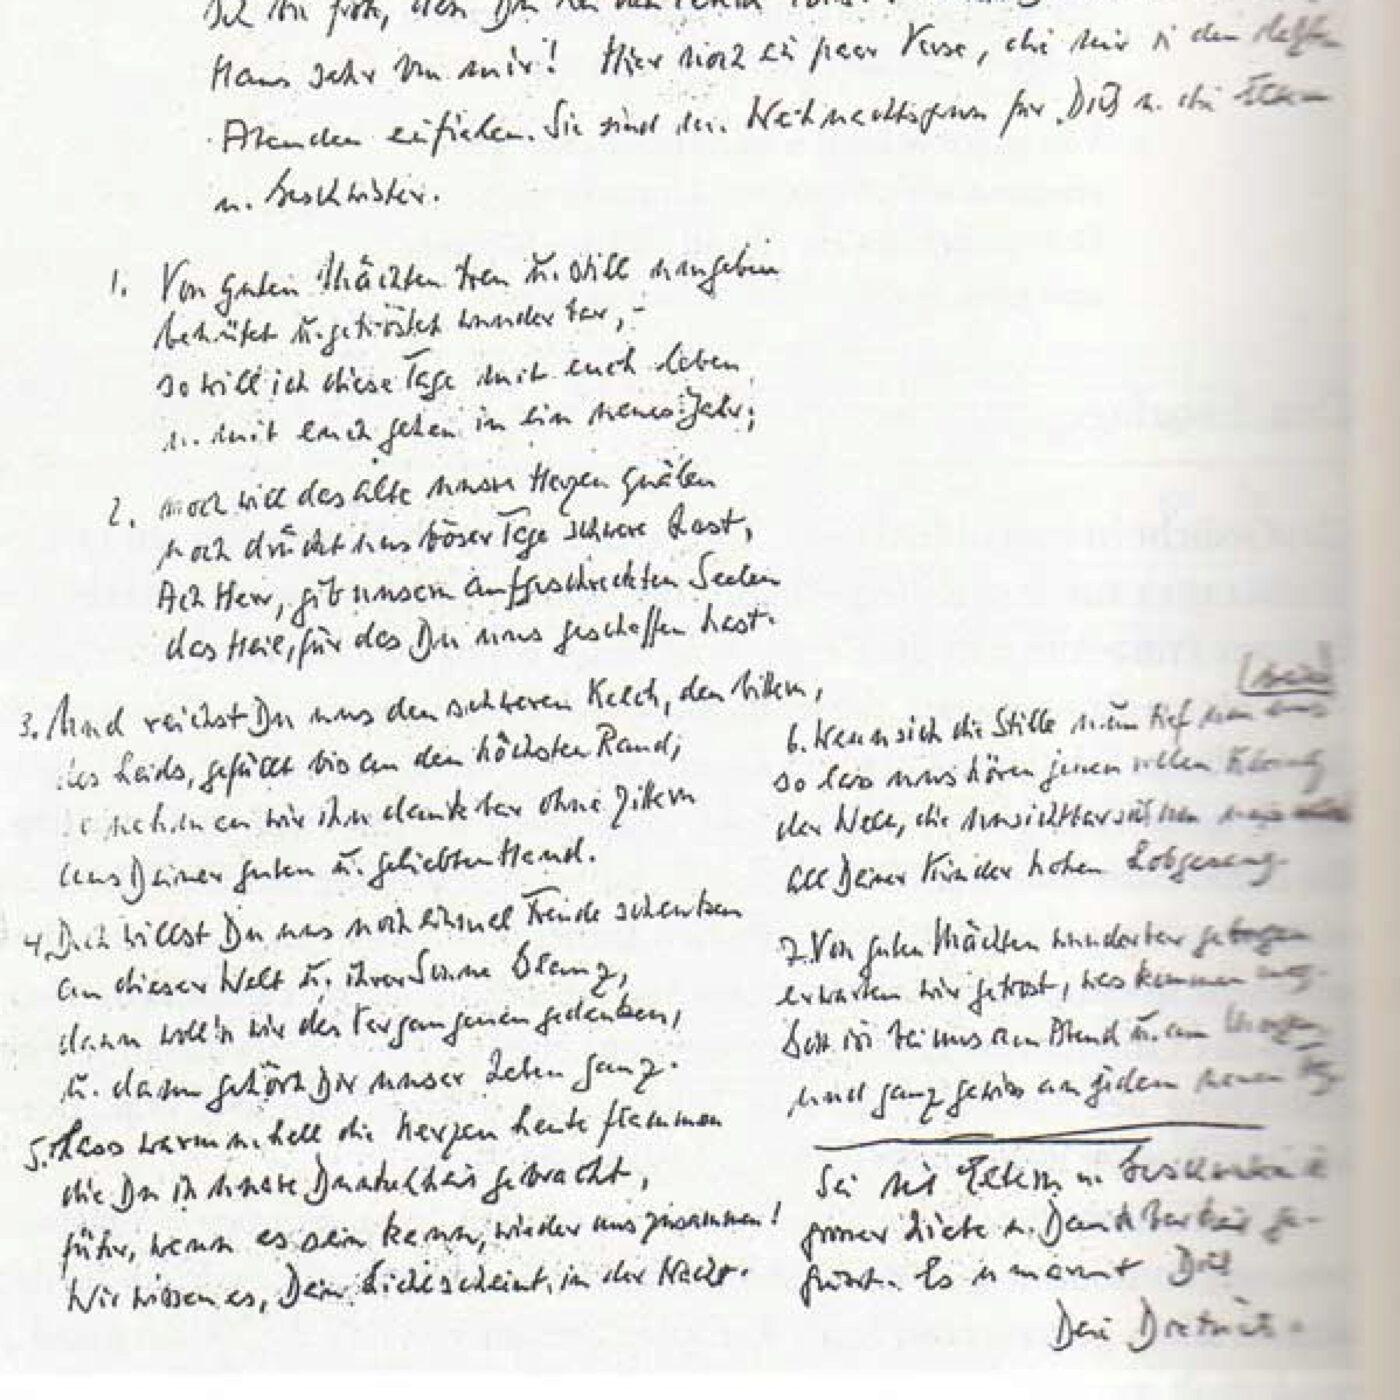 Ich bin froh, dass Du
Haus sehr von mir! Hier noch ein paar Verse, die mir in den letzten
Abenden einfielen. Sie sind der Weihnachtsgruss für Dich u. die Eltern
u. Geschwister.
1. Von guten Mächten treu u. still umgeben
behütet u. getröstet wunderbar, –
so will ich diese Tage mit euch leben
u. mit euch gehen in ein neues Jahr;
2. noch will das alte unsre Herzen quälen
noch drückt uns böser Tage schwere Last,
Ach Herr, gib unsern aufgeschreckten Seelen
das Heil, für das Du uns geschaffen hast.
3. Und reichst Du uns den schweren Kelch, den bittern,
des Leids, gefüllt bis an den höchsten Rand,
so nehmen wir ihn dankbar ohne Zittern
aus Deiner guten u. geliebten Hand.
4. Doch willst Du uns noch einmal Freude schenken
an dieser Welt u. ihrer Sonne Glanz,
dann woll'n wir des Vergangenen gedenken,
u. dann gehört Dir unser Leben ganz.
5. Lass warm u. hell die Kerzen heute flammen
die Du in unsre Dunkelheit gebracht,
führ, wenn es sein kann, wieder uns zusammen!
Wir wissen es, Dein Licht scheint in der Nacht.
6. Wenn sich die Stille nun tief um uns
so lass uns hören jenen vollen Klang
der Welt, die unsichtbar sich um uns
all Deiner Kinder hohen Lobgesang.
7. Von guten Mächten wunderbar geborgen
erwarten wir getrost, was kommen mag.
Gott ist bei uns am Abend u. am Morgen,
und ganz gewiss an jedem neuen Tag.
Sei mit Eltern u. Geschwistern in
grosser Liebe u. Dankbarkeit ge-
grüsst. Es umarmt Dich
Dein Dietrich.